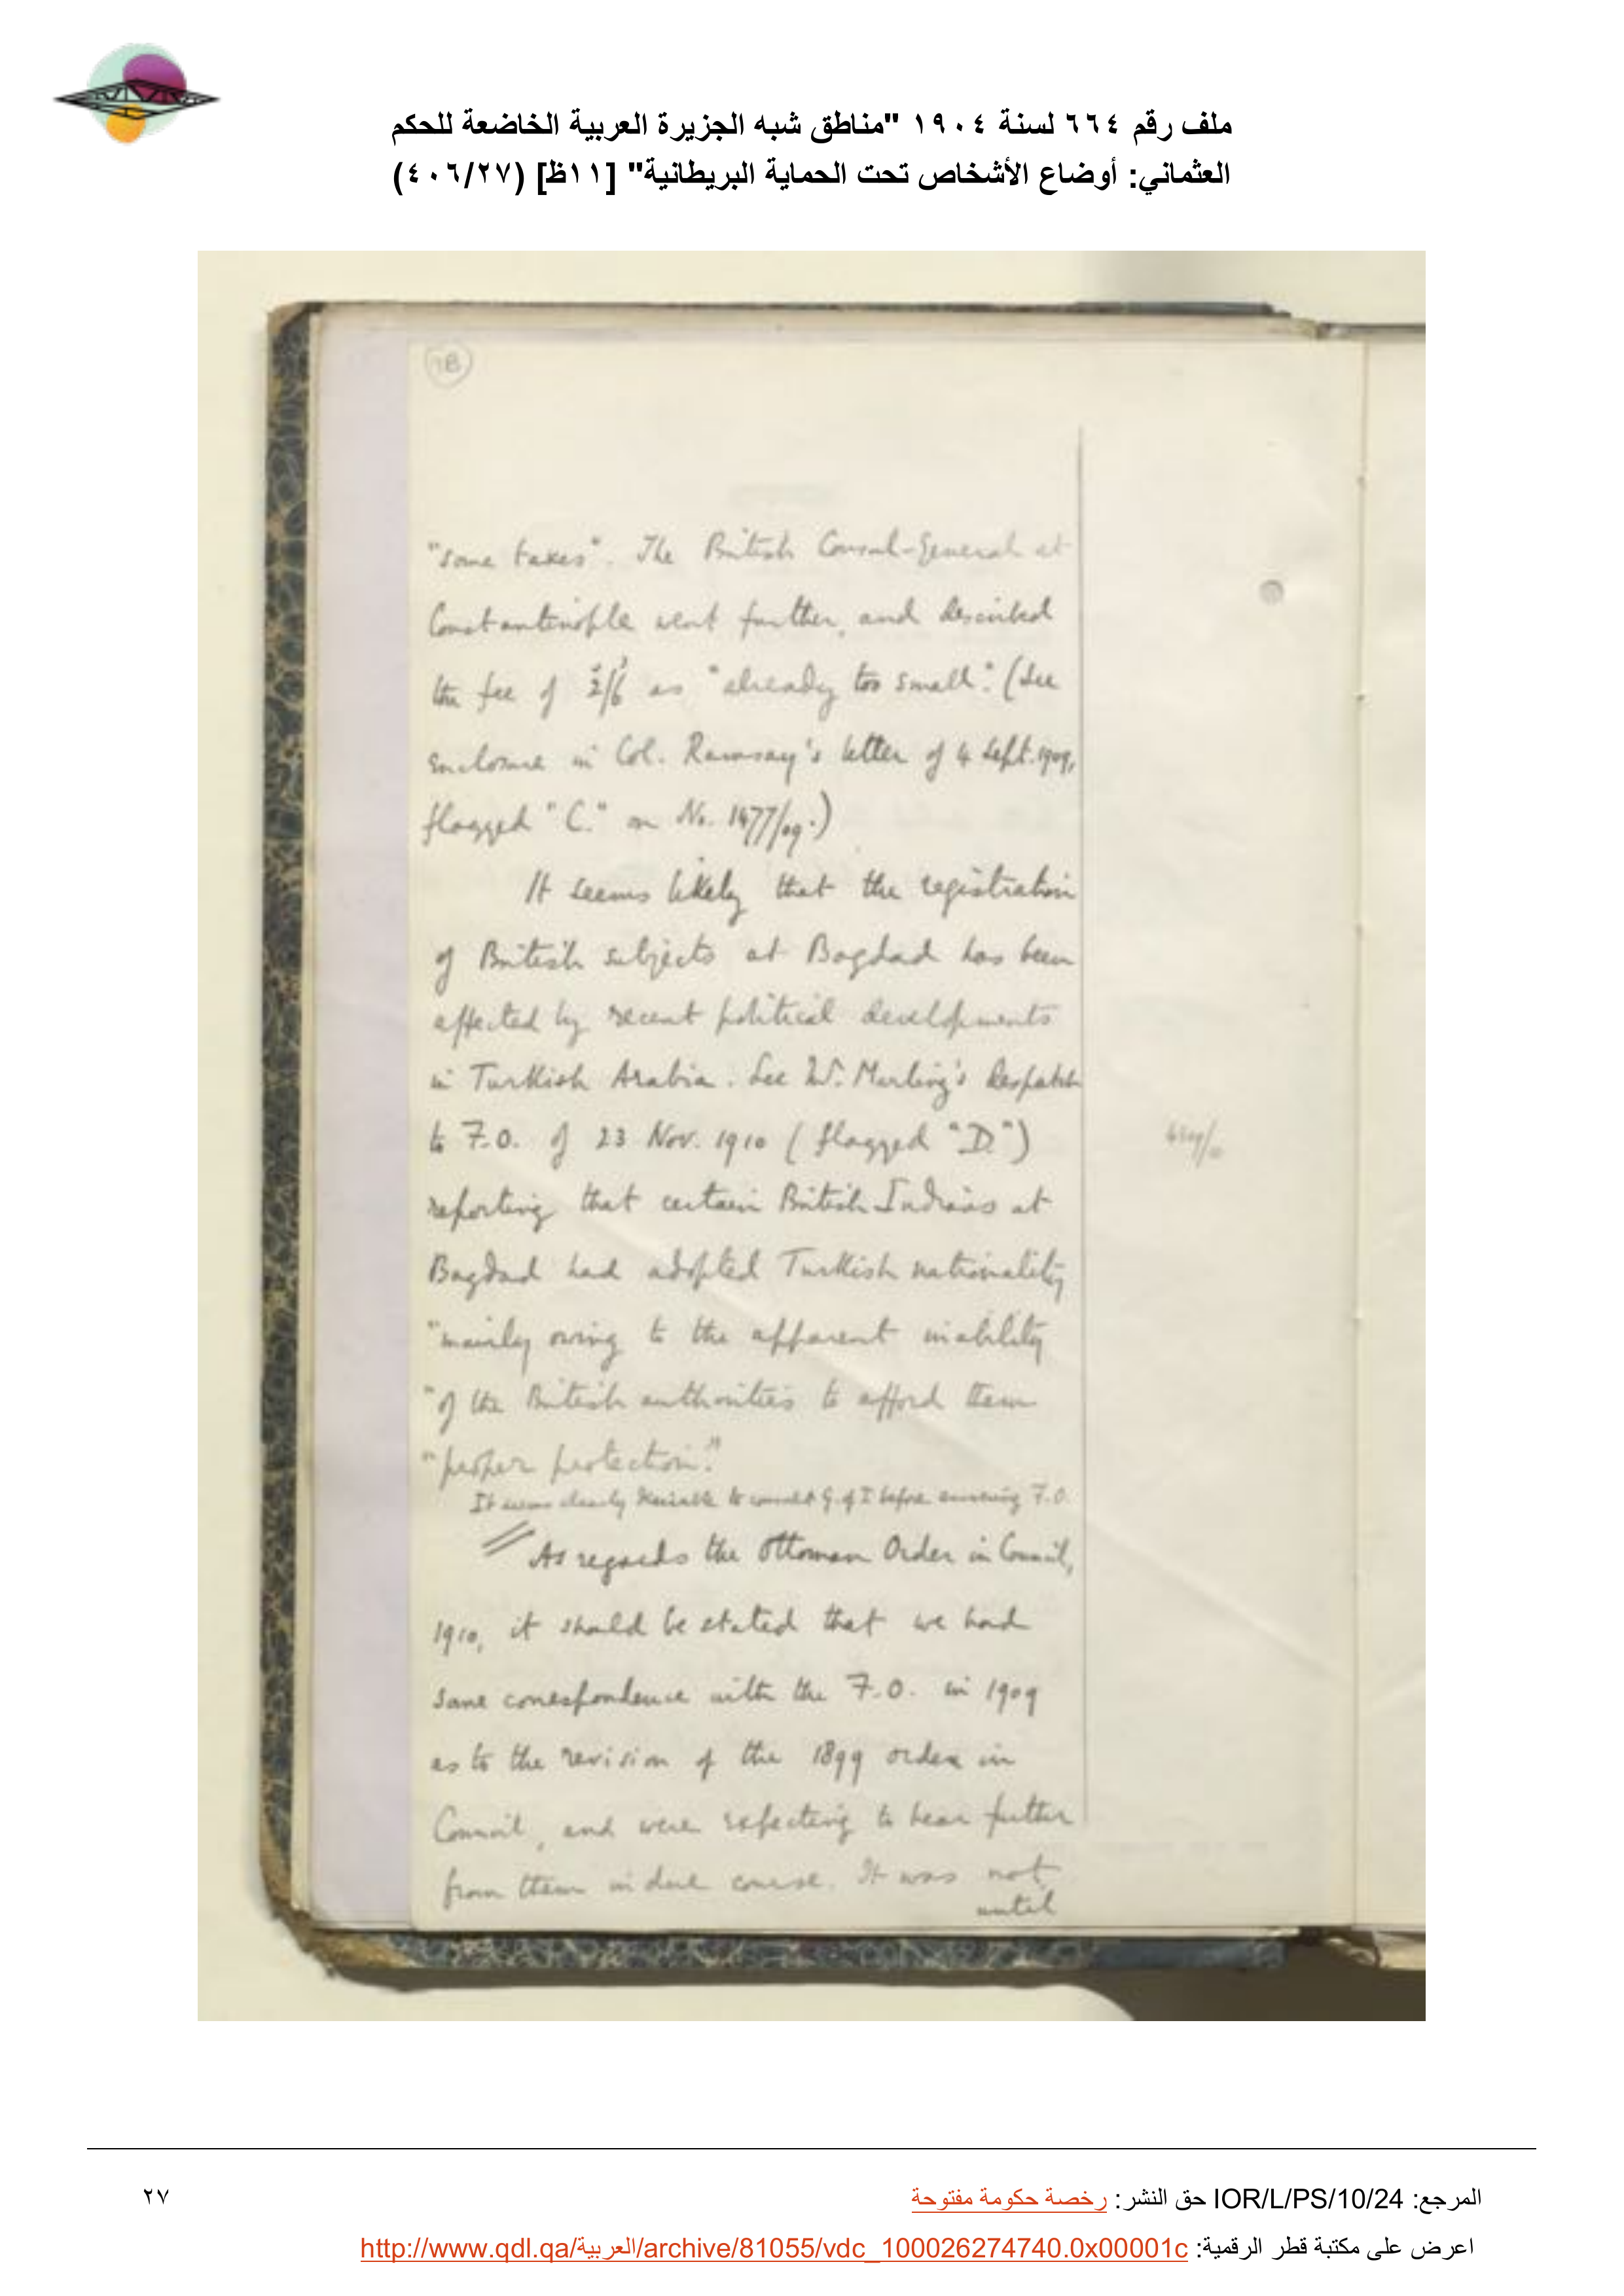 ملف رقم ٦٦٤ لسنة ١٩٠٤ "مناطق شبه الجزيرة العربية الخاضعة للحكم
العثماني: أوضاع الأشخاص تحت الحماية البريطانية" [١١ظ] (٤٠٦/٢٧)
"some taxes". The British Consul-General at
Constantinople went further, and described
the fee of 2/6 as "already too small". (See
enclosure in Col. Ramsay's letter of 4 Sept. 1909,
flagged "C." on No. 1477/09.)
It seems likely that the registration
of British subjects at Bagdad has been
affected by recent political developments
in Turkish Arabia. See Mr. Marling's despatch
to F.O. of 23 Nov. 1910 (flagged "D.")
reporting that certain British Indians at
Bagdad had adopted Turkish nationality
"mainly owing to the apparent inability
"of the British authorities to afford them
"proper protection."
It seems clearly desirable to consult G. of I before answering F.O.
As regards the Ottoman Order in Council,
1910, it should be stated that we had
some correspondence with the F.O. in 1909
as to the revision of the 1899 order in
Council, and were expecting to hear further
from them in due course. It was not
until
المرجع: IOR/L/PS/10/24 حق النشر: رخصة حكومة مفتوحة
٢٧
اعرض على مكتبة قطر الرقمية: http://www.qdl.qa/العربية/archive/81055/vdc_100026274740.0x00001c